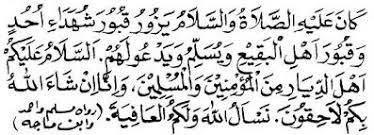 كَانَ عَلَيْهِ الصَّلَاةُ وَالسَّلَامُ يَزُورُ قُبُورَ شُهَدَاءِ أُحُدٍ
وَقُبُورَ اَهْلِ الْبَقِيْعِ وَيُسَلِّمُ وَيَدْعُولَهُمْ. اَلسَّلَامُ عَلَيْكُمْ
اَهْلَ الدِّيَارِ مِنَ الْمُؤْمِنِيْنَ وَالْمُسْلِمِيْنَ، وَاِنَّااِنْ شَاءَ اللهُ
بِكُمْ لَاحِقُونَ. نَسْأَلُ اللهَ وَلَكُمُ الْعَافِيَةَ. (رواه مسلم واحمد وابن ماجه)